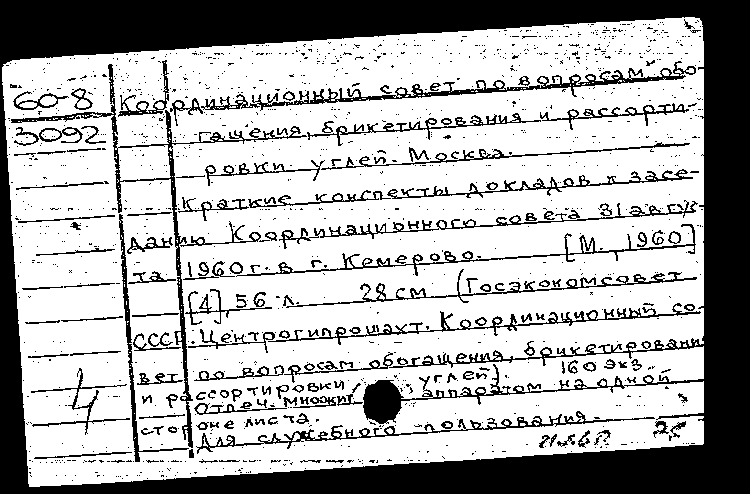 60-8 Координационный совет по вопросам обо-
3092 гащения, брикетирования и рассорти-
ровки углей. Москва.
Краткие конспекты докладов к засе-
данию Координационного совета 31 авгус-
та 1960 г. в г. Кемерово. [М., 1960]
[4], 56 л. 28 см (Госэкономсовет
СССР. Центрогипрошахт. Координационный со-
вет по вопросам обогащения, брикетирования
и рассортировки углей). 160 экз.
Отпеч. множит. аппаратом на одной
стороне листа.
Для служебного пользования.
4